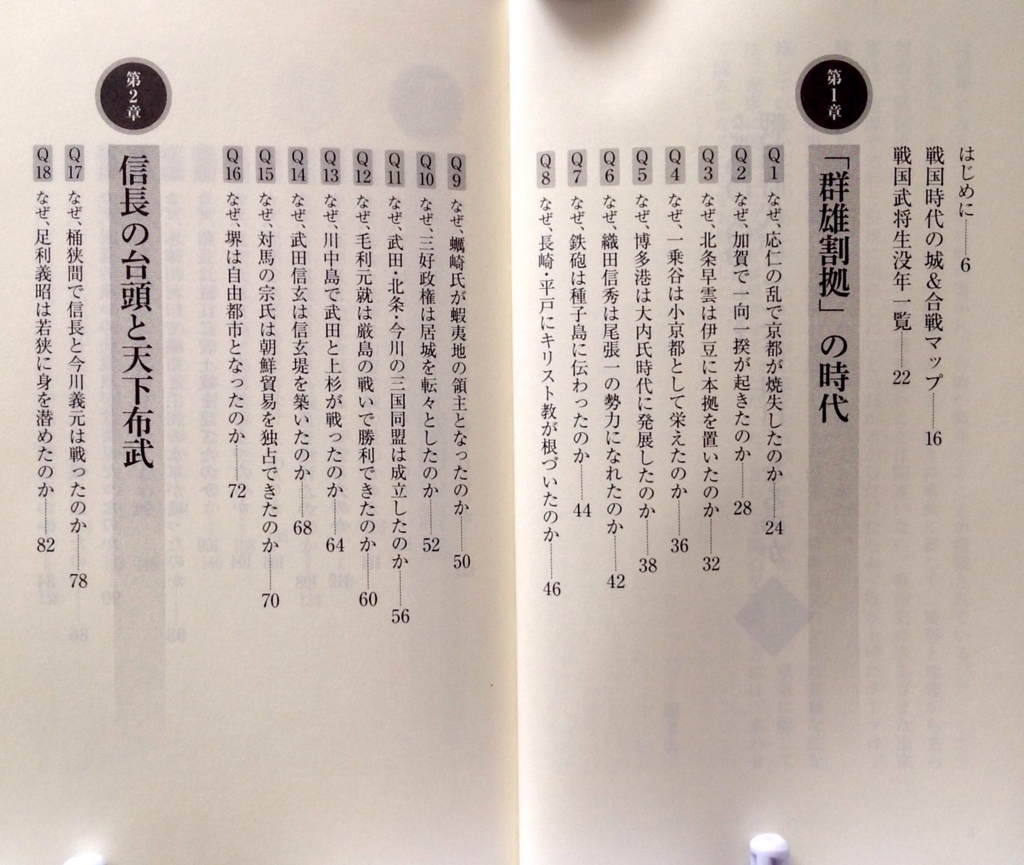 はじめに……6
戦国時代の城&合戦マップ……16
戦国武将生没年一覧……22
第1章
「群雄割拠」の時代
Q1 なぜ、応仁の乱で京都が焼失したのか……24
Q2 なぜ、加賀で一向一揆が起きたのか……28
Q3 なぜ、北条早雲は伊豆に本拠を置いたのか……32
Q4 なぜ、一乗谷は小京都として栄えたのか……36
Q5 なぜ、博多港は大内氏時代に発展したのか……38
Q6 なぜ、織田信秀は尾張一の勢力になれたのか……42
Q7 なぜ、鉄砲は種子島に伝わったのか……44
Q8 なぜ、長崎・平戸にキリスト教が根づいたのか……46
Q9 なぜ、蠣崎氏が蝦夷地の領主となったのか……50
Q10 なぜ、三好政権は居城を転々としたのか……52
Q11 なぜ、武田・北条・今川の三国同盟は成立したのか……56
Q12 なぜ、毛利元就は厳島の戦いで勝利できたのか……60
Q13 なぜ、川中島で武田と上杉が戦ったのか……64
Q14 なぜ、武田信玄は信玄堤を築いたのか……68
Q15 なぜ、対馬の宗氏は朝鮮貿易を独占できたのか……70
Q16 なぜ、堺は自由都市となったのか……72
第2章
信長の台頭と天下布武
Q17 なぜ、桶狭間で信長と今川義元は戦ったのか……78
Q18 なぜ、足利義昭は若狭に身を潜めたのか……82